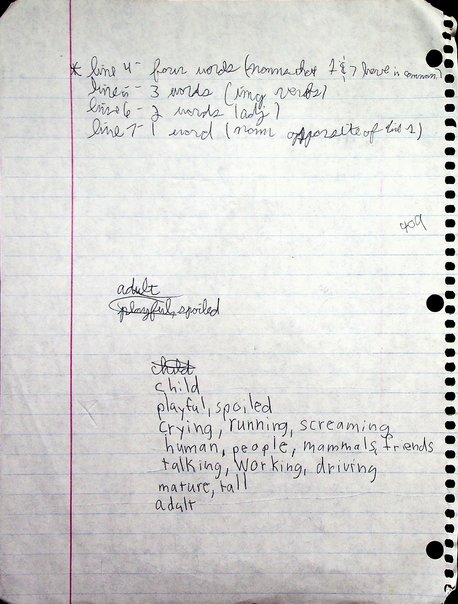 * line 4 - four words (nouns that 1 & 7 have in common)
line 5 - 3 words (ing verbs)
line 6 - 2 words (adj)
line 7 - 1 word (noun opposite of line 1)
409
adult
playful, spoiled
child
child
playful, spoiled
crying, running, screaming
human, people, mammals, friends
talking, working, driving
mature, tall
adult